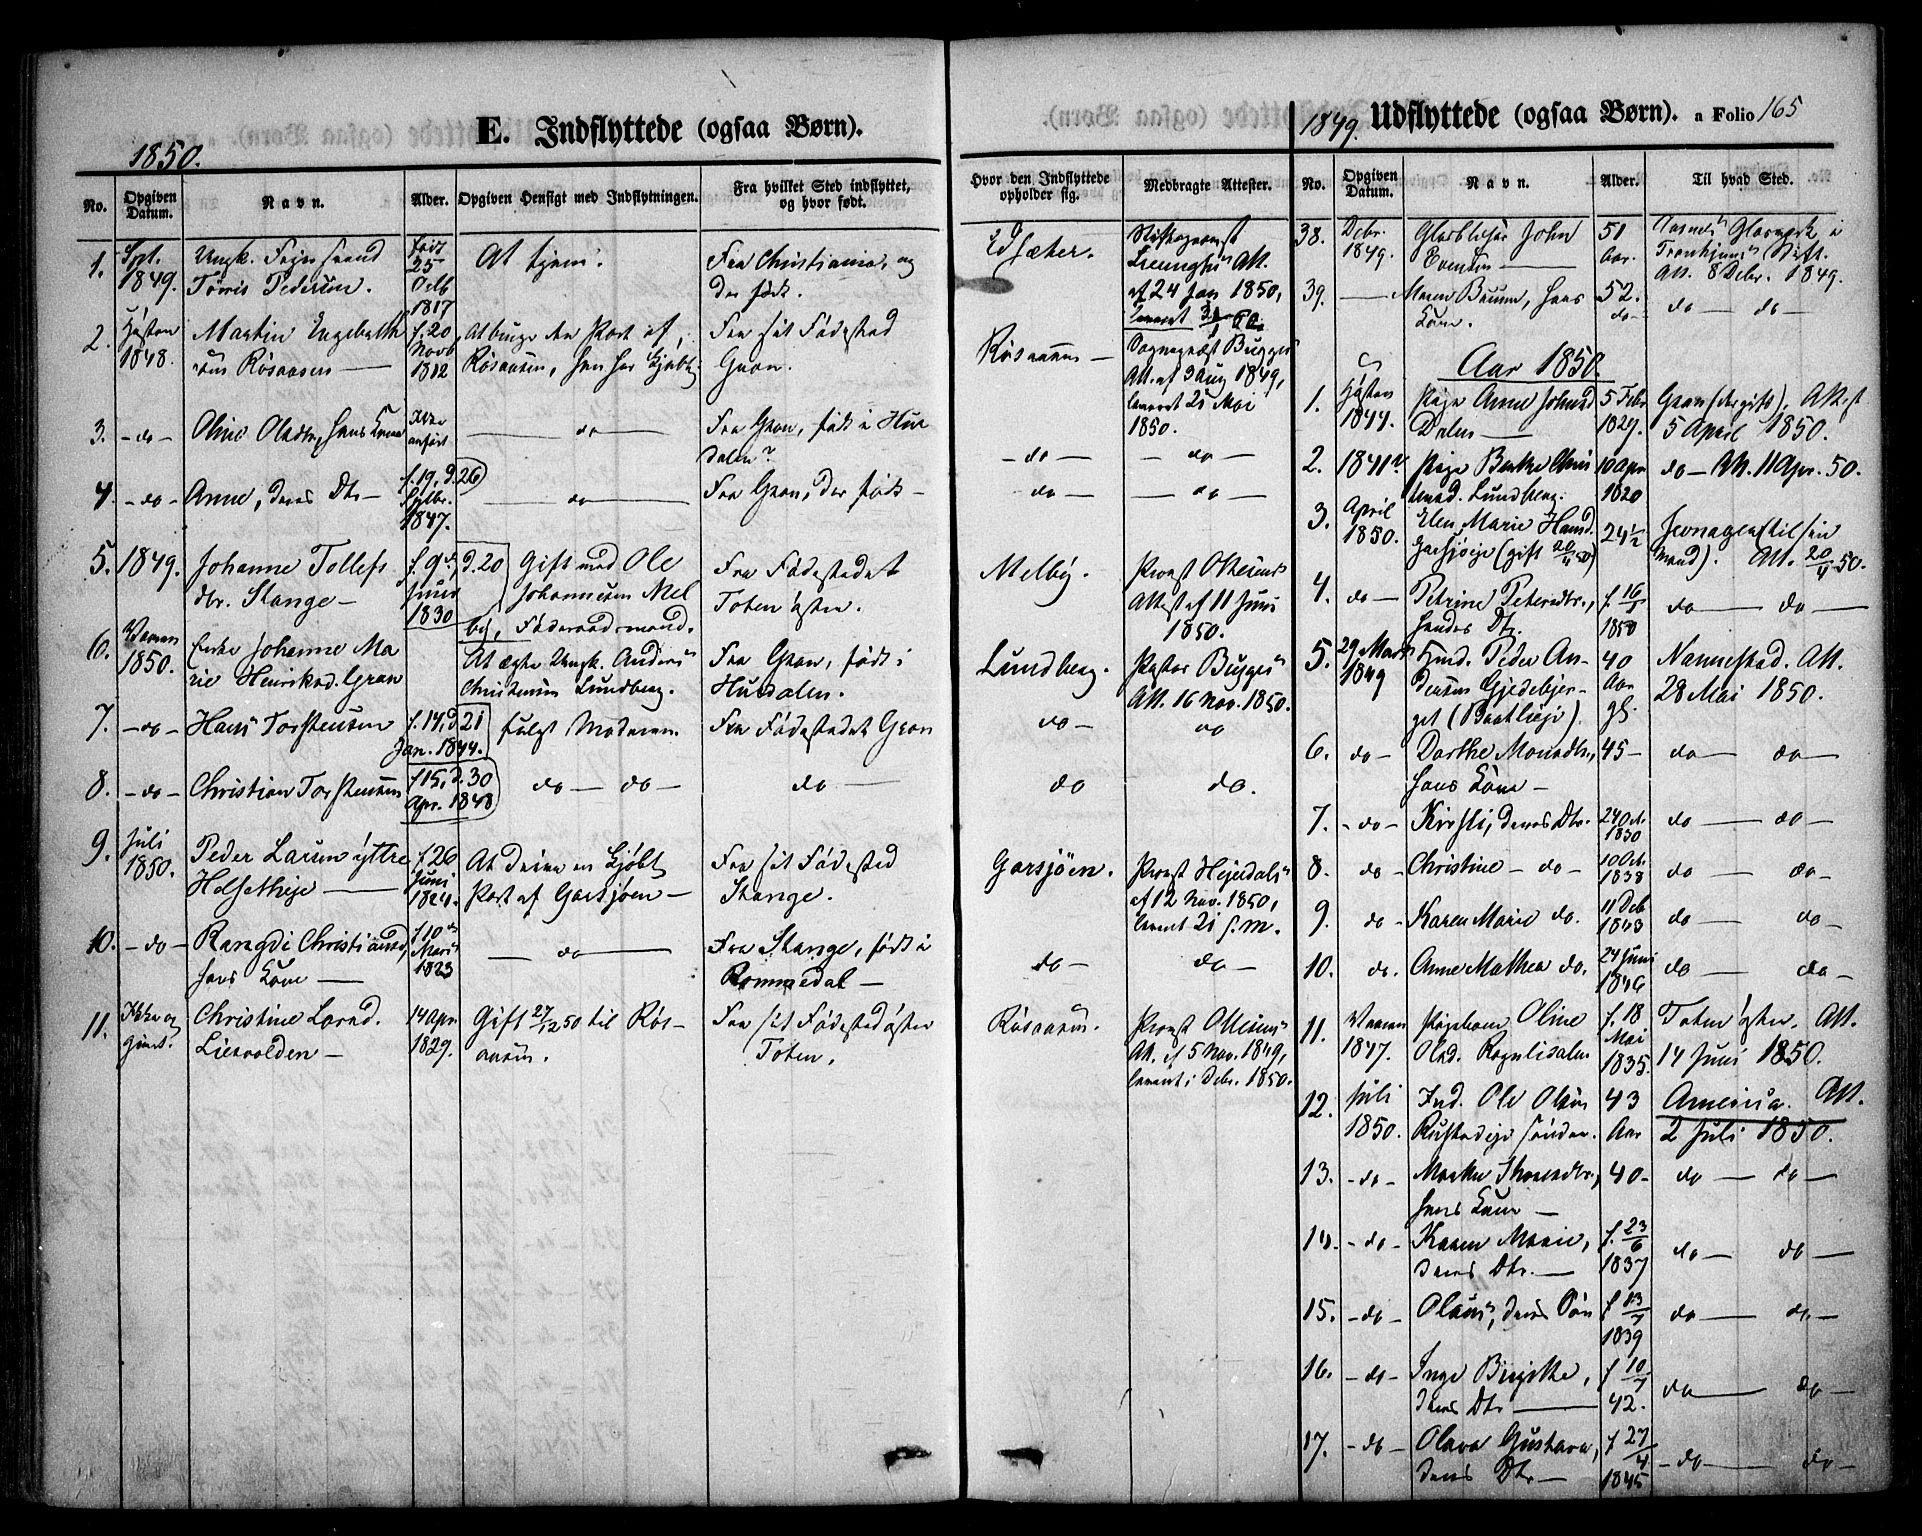 E. Indflyttede (ogsaa Børn).
1850.
No.
Opgiven Datum.
Navn.
Alder.
Opgiven Hensigt med Indflytningen.
Fra hvilket Sted indflyttet, og hvor født.
Hvor den Indflyttede opholder sig.
Medbragte Attester.
1. Spt. 1849. Ungk. Tønnis Pedersen. 25 Octb 1817 At tjene. Fra Christiania, og der født. Edsæter. Att. af 24 Jan 1850,
2. Høsten 1848. Martin Engebrethsen Røsaasen f. 20 Novb 1812 At bruge en Part af Røsaasen, Fra sit Fødested Gran. Røsaasen Sognepræst Bugges Att. af 3 Aug 1849, leveret 21 Mai 1850.
3. -do- Oline Olsdtr, hans Kone Ikke anført do Fra Gran, født i Hurdalen? -do- -do-
4. -do- Anne, deres Dtr f. 19, d. 26 Octbr. 1847. do Fra Gran, der født do- -do-
5. 1849. Johanne Tollefsdtr. Stange f. 9de, d. 20 Juni 1830 Gift med Ole Johannesen Melby, Føderaadsmand. Fra Fødestedet Toten østre. Melby. Provst Attest af 11 Juni 1850.
6. Vaaren 1850. Enke Johanne Marie Henriksd. Gran At ægte Ungk. Anders Christensen Lundberg. Fra Gran, født i Hurdalen. Lundberg. Pastor Bugges Att. 16 Nov. 1850.
7. -do- Hans Torstensen f. 14, d. 21 Jan. 1844. fulgt Moderen. Fra Fødestedet Gran do- do
8. -do- Christian Torstensen f 15, d. 30 Apr. 1848 do - do- do do do.
9. Juli 1850. Peder Larsen yttre Helsetheje f. 26 Juni 1824. At drive en kjøbt Part af Garsjøen Fra sit Fødested Stange. Garsjöen. Provst Hejerdals af 12 Nov. 1850, leveret 21 s. m.
10. -do- Rangdi Christiansd, hans Kone f. 10de Marts 1823 do Fra Stange, født i Rommedal do- do-
11. Christine Larsd. Lievolden 14 Apr. 1829. Gift 27/12 50 til Røsaasen. Fra sit Fødested østre Toten. Røsaasen. Provst Att. af 5 Nov. 1849, leveret i Debr. 1850.
1849. Udflyttede (ogsaa Børn). a Folio 165
No.
Opgiven Datum.
Navn.
Alder.
Til hvad Sted.
38. Debr. 1849. Glasblæser John Evensen 51 Aar. Aasnes Glasværk i Tronhjems Stift. Att. 8 Debr. 1849.
39. Maren hans Kone. 52. do- do do
Aar 1850.
1. Høsten 1844. Pige Anne Johnsd Dalen 5 Febr 1827. Gran (der gift). Attest 5 April 1850.
2. 1841 Pige Berthe Christensd. Lundberg. 10 Apr 1820 do Att. 11 Apr. 50.
3. April 1850. Elen Marie Hansd. Garsjøeje (gift 20/4 50) 24½ Jevnager (til sin Mand). Att. 20/4 50.
4. do Petrine Petersdtr., hendes Dtr. f. 16/1 1850 do do
5. 29 Marts 1849 Hmd. Peder Andersen Gjedebjerget 40 Aar gl. Nannestad. Att. 28 Mai 1850.
6. do- Dorthe Monsdtr., hans Kone 45 do do
7. -do- Kirsti, deres Dtr. 24 Oct. 1830 do do
8. do- Christine do- 10 Oct. 1838 do do
9. do- Karen Marie do. 11 Deb 1843 do do
10. do. Anne Mathea do. 24 Juni 1846 do do
11. Vaaren 1847. Pigebarn Oline Olsd. f. 18 Mai 1835. Toten østre. Att. 14 Juni 1850.
12. Juli 1850. Ind. Ole Olsen Rustadeje søndre. 43 Aar America. Att. 2 Juli 1850.
13. -do- Marthe hans Kone 40 do do
14. -do- Karen Marie, deres Dtr. f. 23/6 1837 do do
15. -do- Olaus, deres Søn f 13/7 1839 do do
16. -do- Inge Birgitte, deres Dtr f 10/7 42. do do
17. -do- Olava Gustava, deres Dtr f 27/4 1845 do do